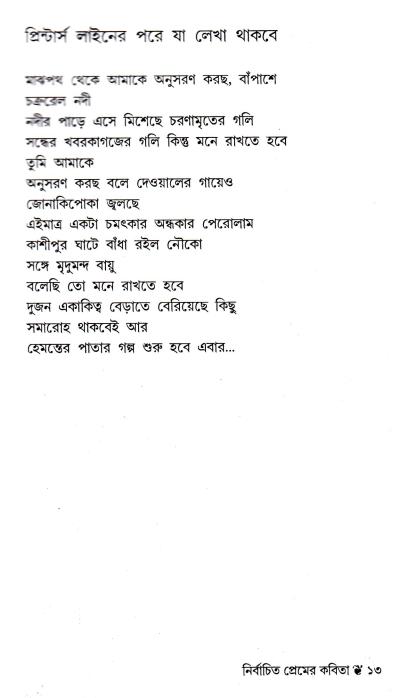 প্রিন্টার্স লাইনের পরে যা লেখা থাকবে
মাঝপথ থেকে আমাকে অনুসরণ করছ, বাঁপাশে
চক্ররেল নদী
নদীর পাড়ে এসে মিশেছে চরণামৃতের গলি
সন্ধের খবরকাগজের গলি কিন্তু মনে রাখতে হবে
তুমি আমাকে
অনুসরণ করছ বলে দেওয়ালের গায়েও
জোনাকিপোকা জ্বলছে
এইমাত্র একটা চমৎকার অন্ধকার পেরোলাম
কাশীপুর ঘাটে বাঁধা রইল নৌকো
সঙ্গে মৃদুমন্দ বায়ু
বলেছি তো মনে রাখতে হবে
দুজন একাকিত্ব বেড়াতে বেরিয়েছে কিছু
সমারোহ থাকবেই আর
হেমন্তের পাতার গল্প শুরু হবে এবার...
নির্বাচিত প্রেমের কবিতা ❦ ১৩